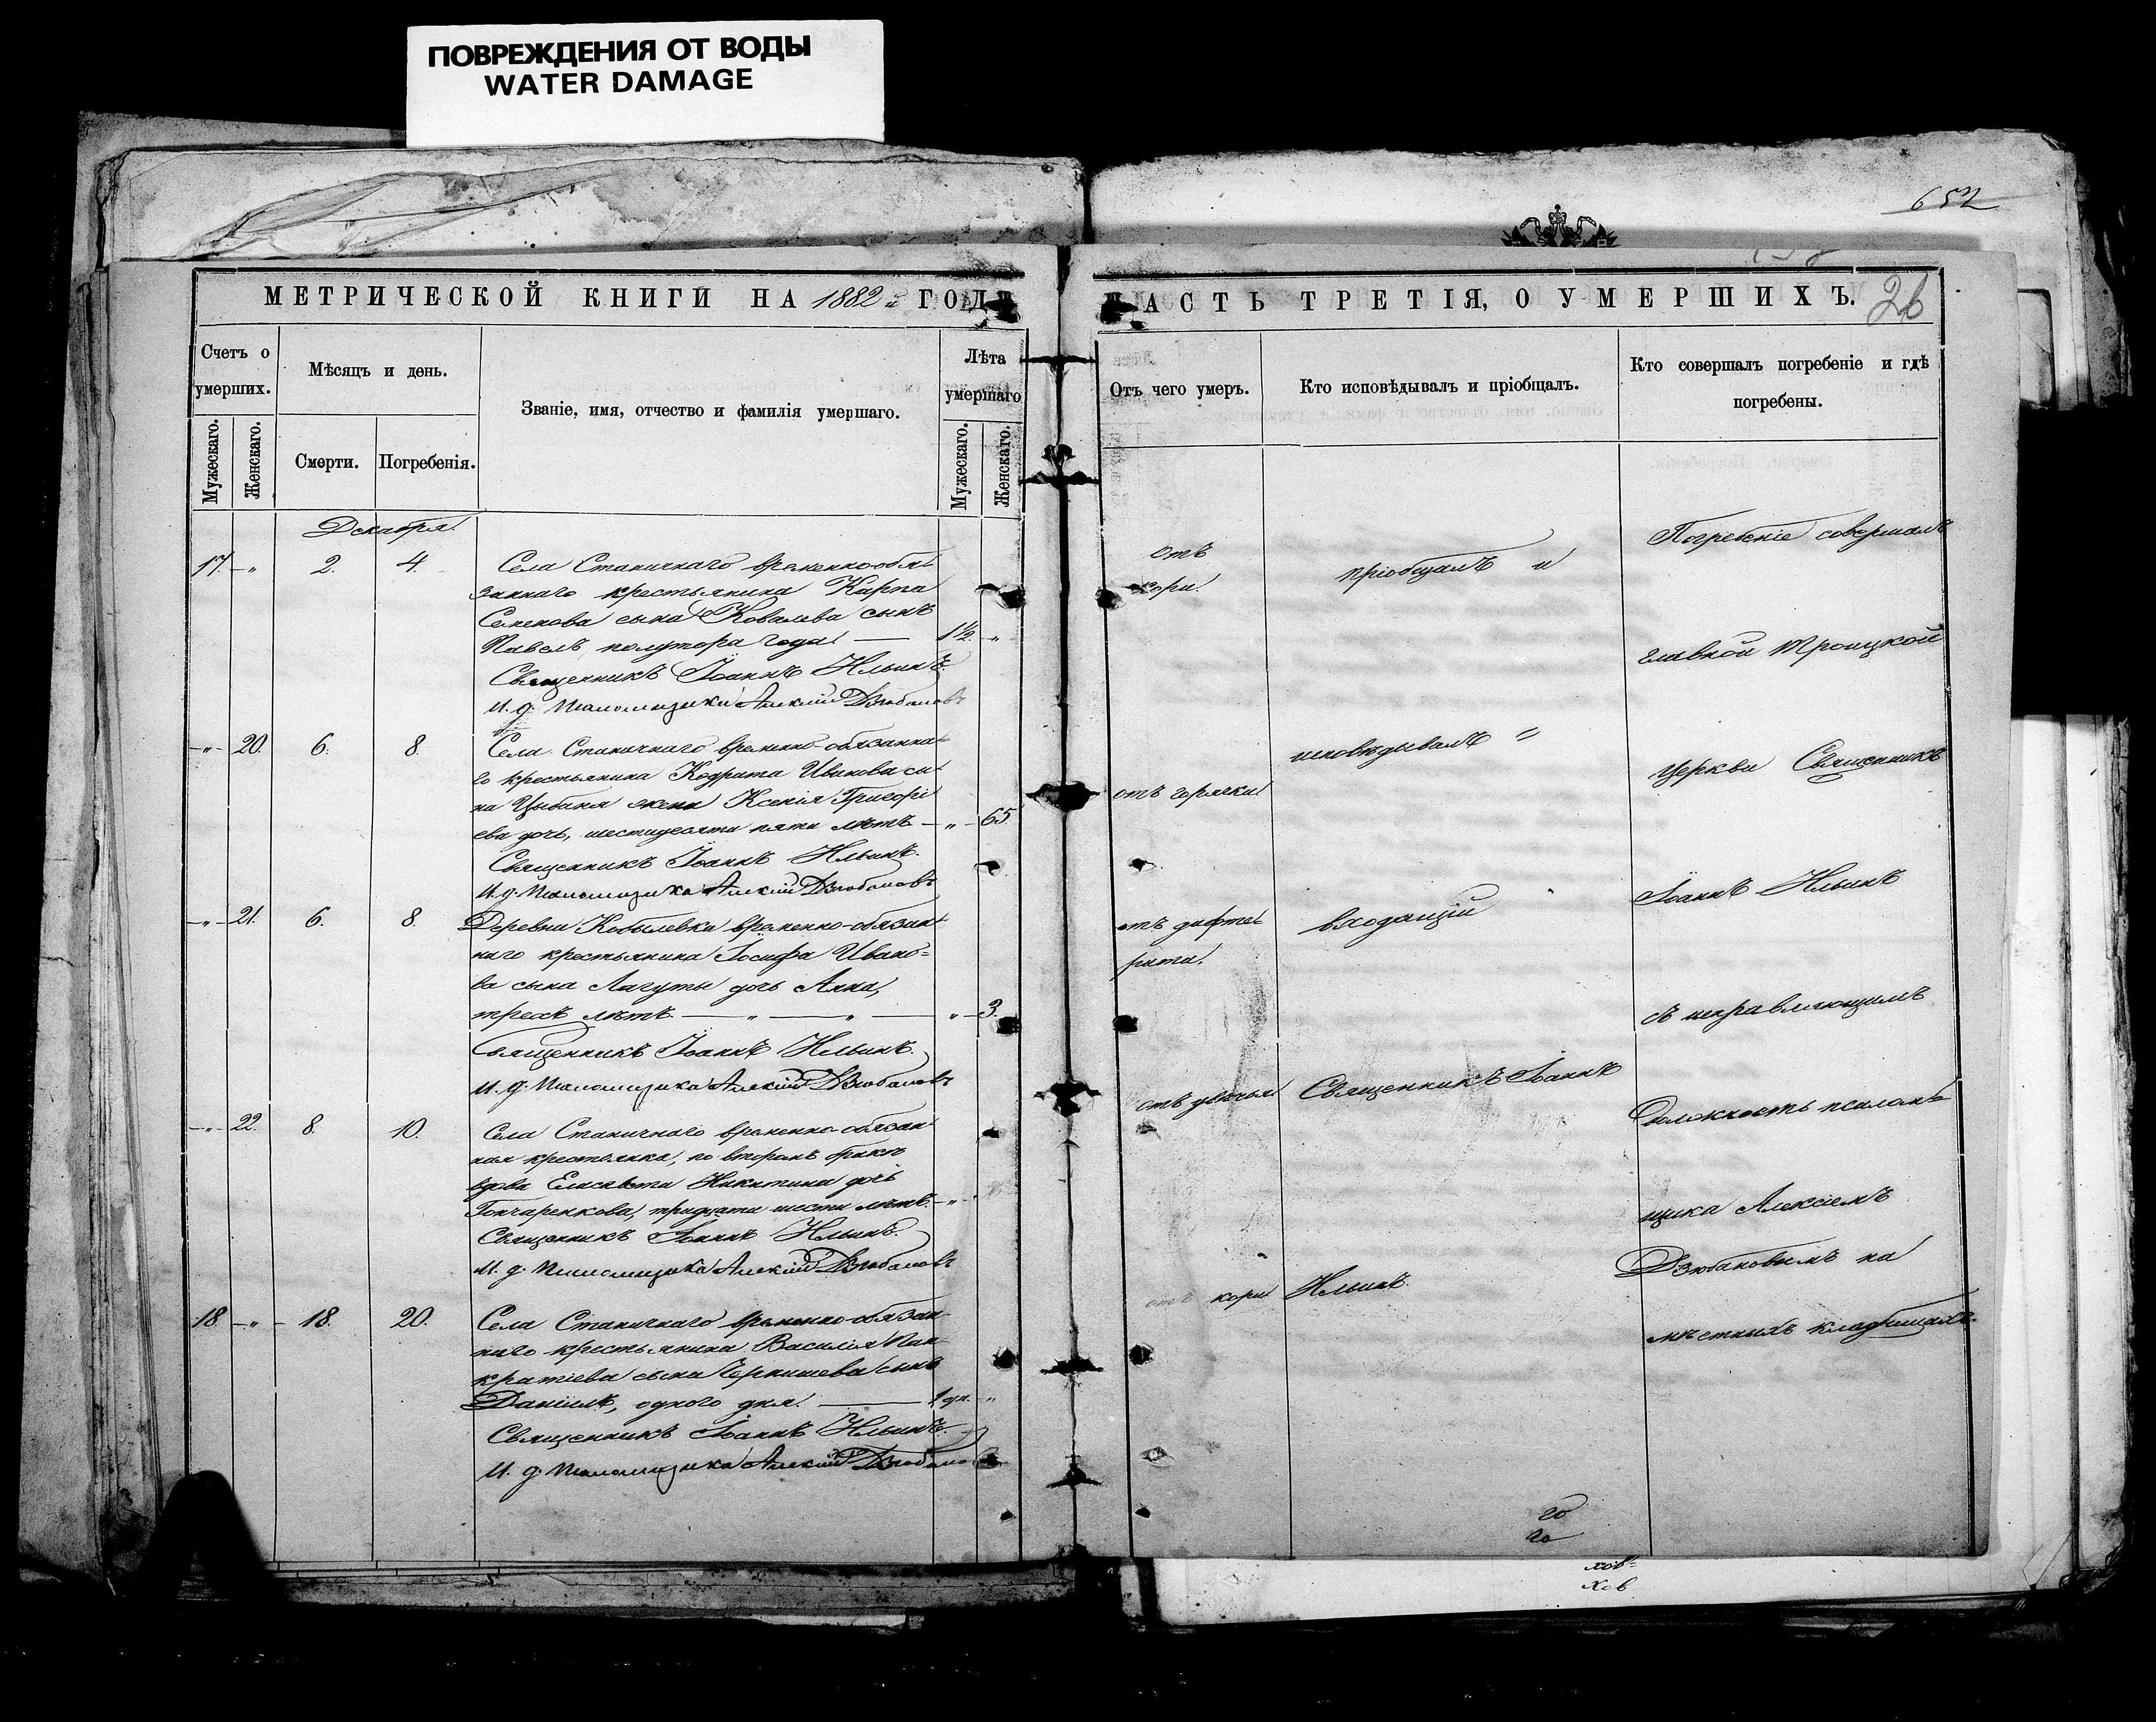 ПОВРЕЖДЕНИЯ ОТ ВОДЫ
WATER DAMAGE
652
МЕТРИЧЕСКОЙ КНИГИ НА 1882 й ГОДЪ
Счетъ о умершихъ.
Мужескаго.
Женскаго.
Мѣсяцъ и день.
Смерти.
Погребенія.
Званіе, имя, отчество и фамилія умершаго.
Лѣта умершаго
Мужескаго.
Женскаго.
Декабря
17. — " 2. 4. Села Станичнаго временно-обя-
заннаго крестьянина Карпа
Семенова сына Ковалева сынъ
Павелъ, полутора года — 1½ "
Священникъ Іоаннъ Ильинъ
И. д. Псаломщика Алексій Дзюбановъ
— " — 20. 6. 8. Села Станичнаго временно-обязанна-
го крестьянина Кодрата Иванова сы-
на Цыбаня жена Ксенія Григорі-
ева дочь, шестидесяти пяти лѣтъ — " — 65
Священникъ Іоаннъ Ильинъ.
И. д. Псаломщика Алексій Дзюбановъ
— " — 21. 6. 8. Деревни Кобылевки временно-обязан-
наго крестьянина Іосифа Ивано-
ва сына Лагуты дочь Анна,
трехъ лѣтъ. — " — " — " — 3.
Священникъ Іоаннъ Ильинъ.
И. д. Псаломщика Алексій Дзюбановъ
— " — 22. 8. 10. Села Станичнаго временно-обязан-
ная крестьянка, по второмъ бракѣ
вдова Елисавета Никитина дочь
Гончаренкова, тридцати шести лѣтъ. — "
Священникъ Іоаннъ Ильинъ.
И. д. Псаломщика Алексій Дзюбановъ
18 — " — 18. 20. Села Станичнаго временно-обязан-
наго крестьянина Василія Пан-
кратіева сына Чернишева сынъ
Даніилъ, одного дня. — 1 дн. "
Священникъ Іоаннъ Ильинъ.
И. д. Псаломщика Алексій Дзюбановъ
ЧАСТЬ ТРЕТІЯ, О УМЕРШИХЪ. 26
Отъ чего умеръ.
Кто исповѣдывалъ и пріобщалъ.
Кто совершалъ погребеніе и гдѣ погребены.
отъ
кори.
отъ горячки
отъ дифте-
рита.
отъ
отъ кори
пріобщалъ и
исповѣдывалъ
Священникъ Іоаннъ
Ильинъ.
Погребеніе совершалъ
главной Троицкой
церкви Священникъ
Іоаннъ Ильинъ
съ исправляющимъ
Должность псалом-
щика Алексіемъ
Дзюбановымъ на
мѣстныхъ кладбищахъ.
го
го
хов
хов